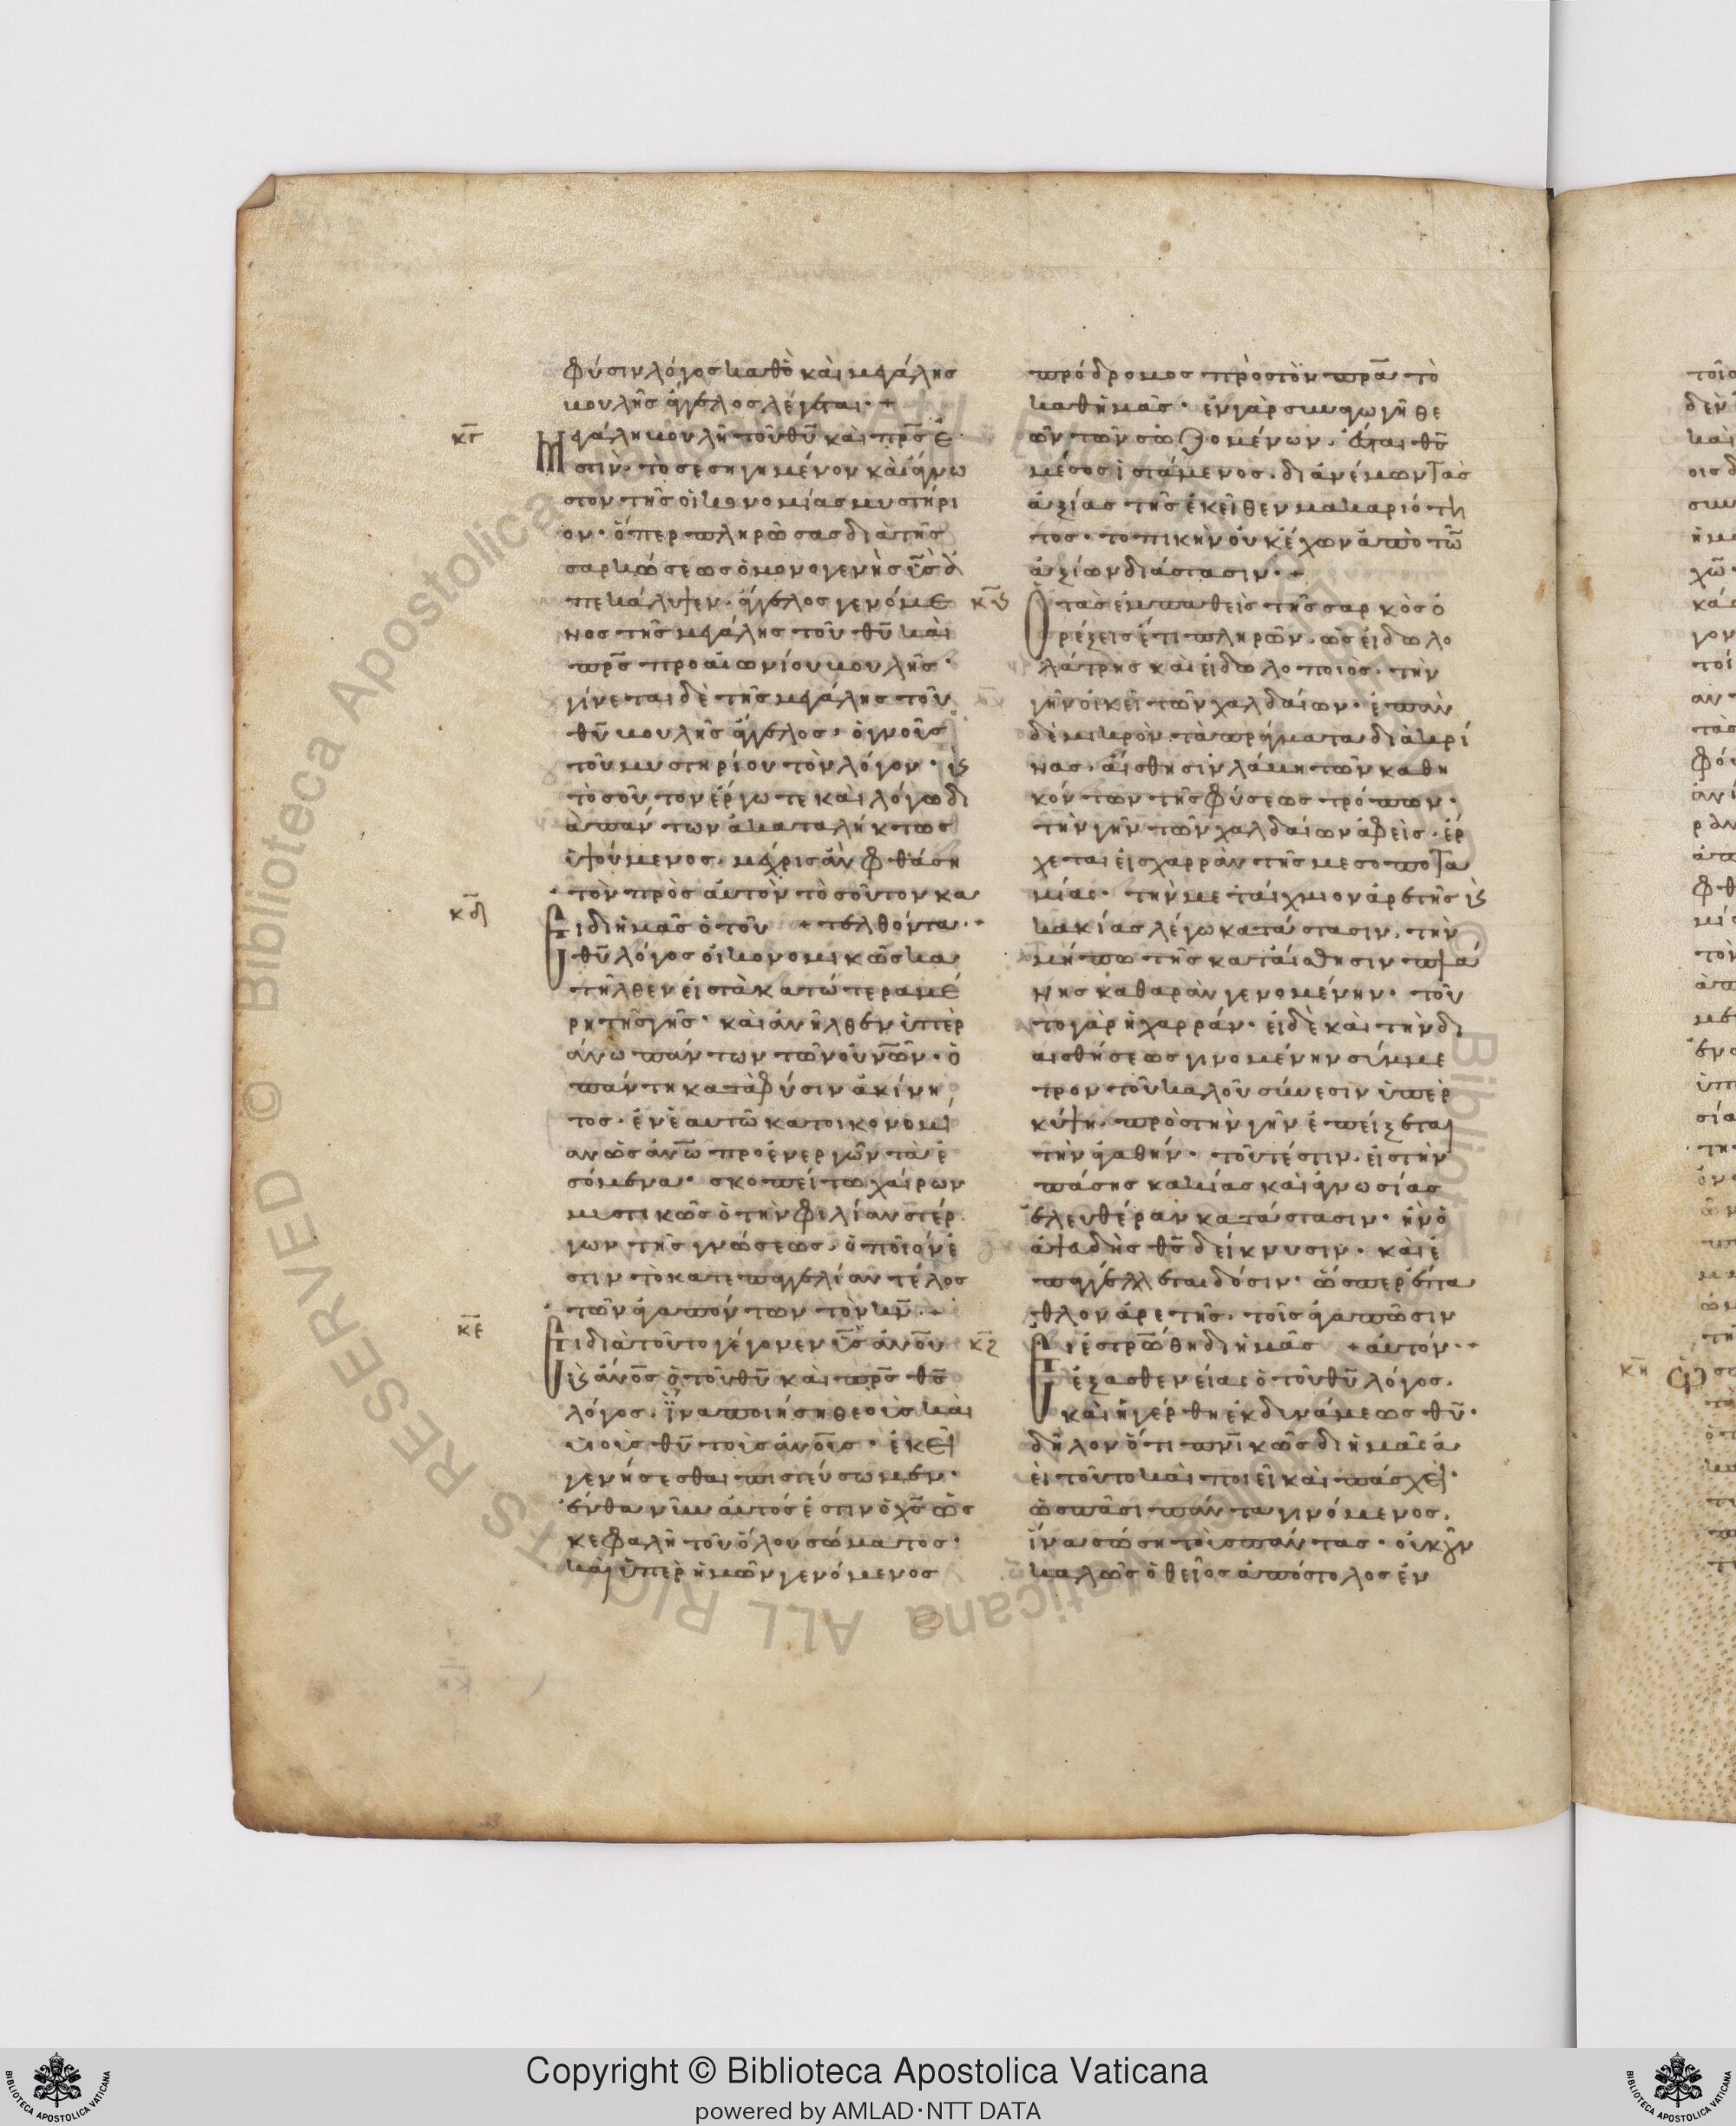 φύσιν λόγος καθὸ καὶ μεγάλης
βουλῆς ἄγγελος λέγεται·
κγ
Μεγάλη βουλὴ τοῦ θυ καὶ πρς ἐ
στὶν· τὸ σεσηγημένον καὶ ἄγνω
στον τῆς οἰκονομίας μυστήρι
ον· ὅπερ πληρώσας διὰ τῆς
σαρκώσεως ὁ μονογενὴς υς ἀ
πεκάλυψεν· ἄγγελος γενόμε
νος τῆς μεγάλης τοῦ θυ καὶ
πρς προαιωνίου βουλῆς·
γίνεται δὲ τῆς μεγάλης τοῦ
θυ βουλῆς ἄγγελος· ὁ γνοὺς
τοῦ μυστηρίου τὸν λόγον· κ
τὸσοῦτον ἔργω τε καὶ λόγω δι
ὰ πάντων ἀκαταλήκτως
ὑψούμενος· μέχρις ἂν φθάση
τὸν πρὸς αὐτὸν τὸσοῦτον κα
τελθόντα·
κδ
Εἰ δι ἡμᾶς ὁ τοῦ
θυ λόγος οἰκονομικῶς κα
τῆλθεν εἰς τὰ κατώτερα μέ
ρη τῆς γῆς· καὶ ἀνῆλθεν ὑπερ
άνω πάντων τῶν οὐνῶν· ὁ
πάντη κατὰ φύσιν ἀκίνη
τος· ἐν ἑαυτῶ κατ οικονομί
αν ὡς ἀνω προενεργῶν τὰ ἐ
σόμενα· σκοπείτω χαίρων
μυστικῶς ὁ τὴν φιλίαν στέρ
γων τῆς γνώσεως· ὁποῖον ἐ
στιν τὸ κατ επαγγελίαν τέλος
τῶν ἀγαπόντων τὸν κν·
κε
Εἰ διὰ τοῦτο γέγονεν υς ἀνου
κ ἀνος ὁ τοῦ θυ καὶ πρς θς
λόγος· ἵνα ποιήση θεοὺς καὶ
υἱοὺς θυ τοὺς ἀνους· ἐκεῖ
γενήσεσθαι πιστεύσωμεν·
ἔνθα νῦν αὐτός ἐστιν ὁ χς ὡς
κεφαλὴ τοῦ ὅλου σώματος·
καὶ ὑπερ ἡμῶν γενόμενος
πρόδρομος πρὸς τὸν πρα τὸ
καθημᾶς· ἐν γὰρ συναγωγῆ θε
ῶν τῶν σωζομένων· ἔσται θς
μέσος ἱστάμενος· διανέμων τὰς
ἀξίας τῆς ἐκεῖθεν μακαριότη
τος· τοπικὴν οὐκ ἔχων ἀπὸ τῶ
ἀξίων διάστασιν·
κς
Ὁ τὰς ἐμπαθεὶς τῆς σαρκὸς ὀ
ρέξεις ἔτι πληρῶν· ὡς εἰδωλο
λάτρης καὶ εἰδωλοποιὸς· τὴν
γῆν οἰκεῖ τῶν χαλδαίων· ἐπὰν
δὲ μικρὸν τὰ πράγματα διακρί
νας· αἴσθησιν λάβη τῶν καθη
κόντων τῆς φύσεως τρόπων·
τὴν γῆν τῶν χαλδαίων ἀφεὶς· ἔρ
χεται εἰς χαρρὰν τῆς μεσοποτα
μίας· τὴν μεταίχμιον ἀρετῆς κ
κακίας λέγω κατάστασιν· τὴν
μήπω τῆς κατ αίσθησιν πλά
νης καθαρὰν γενομένην· τοῦ
το γὰρ ἡ χαρράν· εἰ δὲ καὶ τὴν δι
αισθήσεως γινομένην σύμμε
τρον τοῦ καλοῦ σύνεσιν ὑπερ
κύψη· πρὸς τὴν γῆν ἐπείξεται
τὴν ἀγαθήν· τοῦτέστιν· εἰς τὴν
πάσης κακίας καὶ ἀγνωσίας
ἐλευθέραν κατάστασιν· ἣν ὁ
ἀψαδὴς θς δείκνυσιν· καὶ ἐ
παγγέλλεται δόσιν· ὥσπερ ἔπα
θλον ἀρετῆς· τοῖς ἀγαπῶσιν
αὐτόν·
κζ
Εἰ ἐστρώθη δι ἡμᾶς
ἐξ ασθενείας ὁ τοῦ θυ λόγος·
καὶ ἠγέρθη ἐκ δυνάμεως θυ·
δῆλον ὅτι πνικῶς δι ἡμᾶς ἀ
εὶ τοῦτο καὶ ποιεῖ καὶ πάσχει·
ὡς πᾶσι πάντα γινόμενος·
ἵνα σώση τοὺς πάντας· οὐκοῦν
καλῶς ὁ θεῖος ἀπόστολος ἐν
κη
Copyright © Biblioteca Apostolica Vaticana
powered by AMLAD·NTT DATA